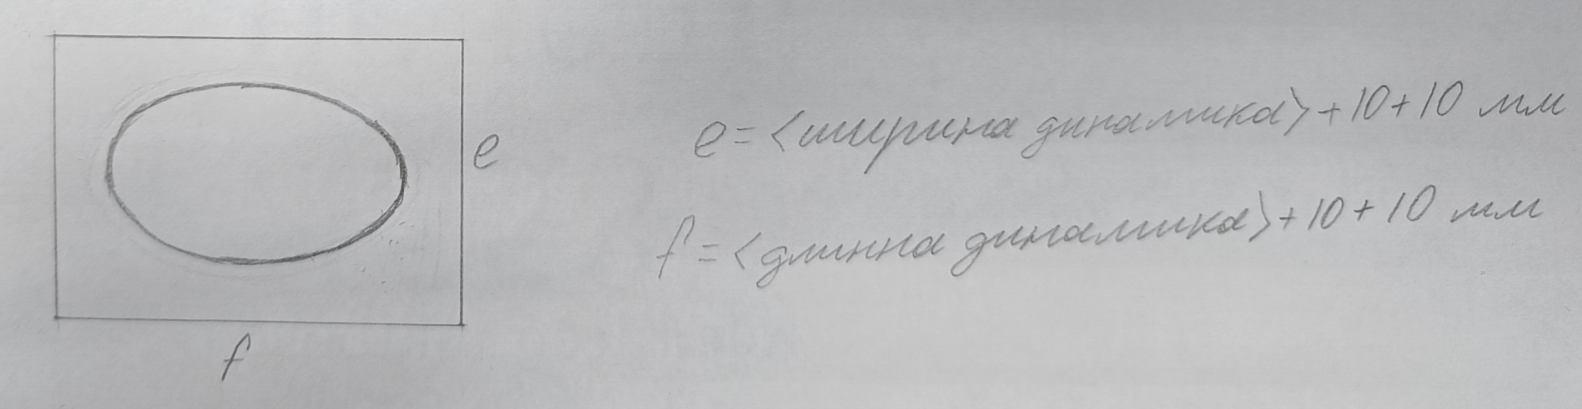 e
e = <ширина динамика> + 10 + 10 мм
f = <длинна динамика> + 10 + 10 мм
f